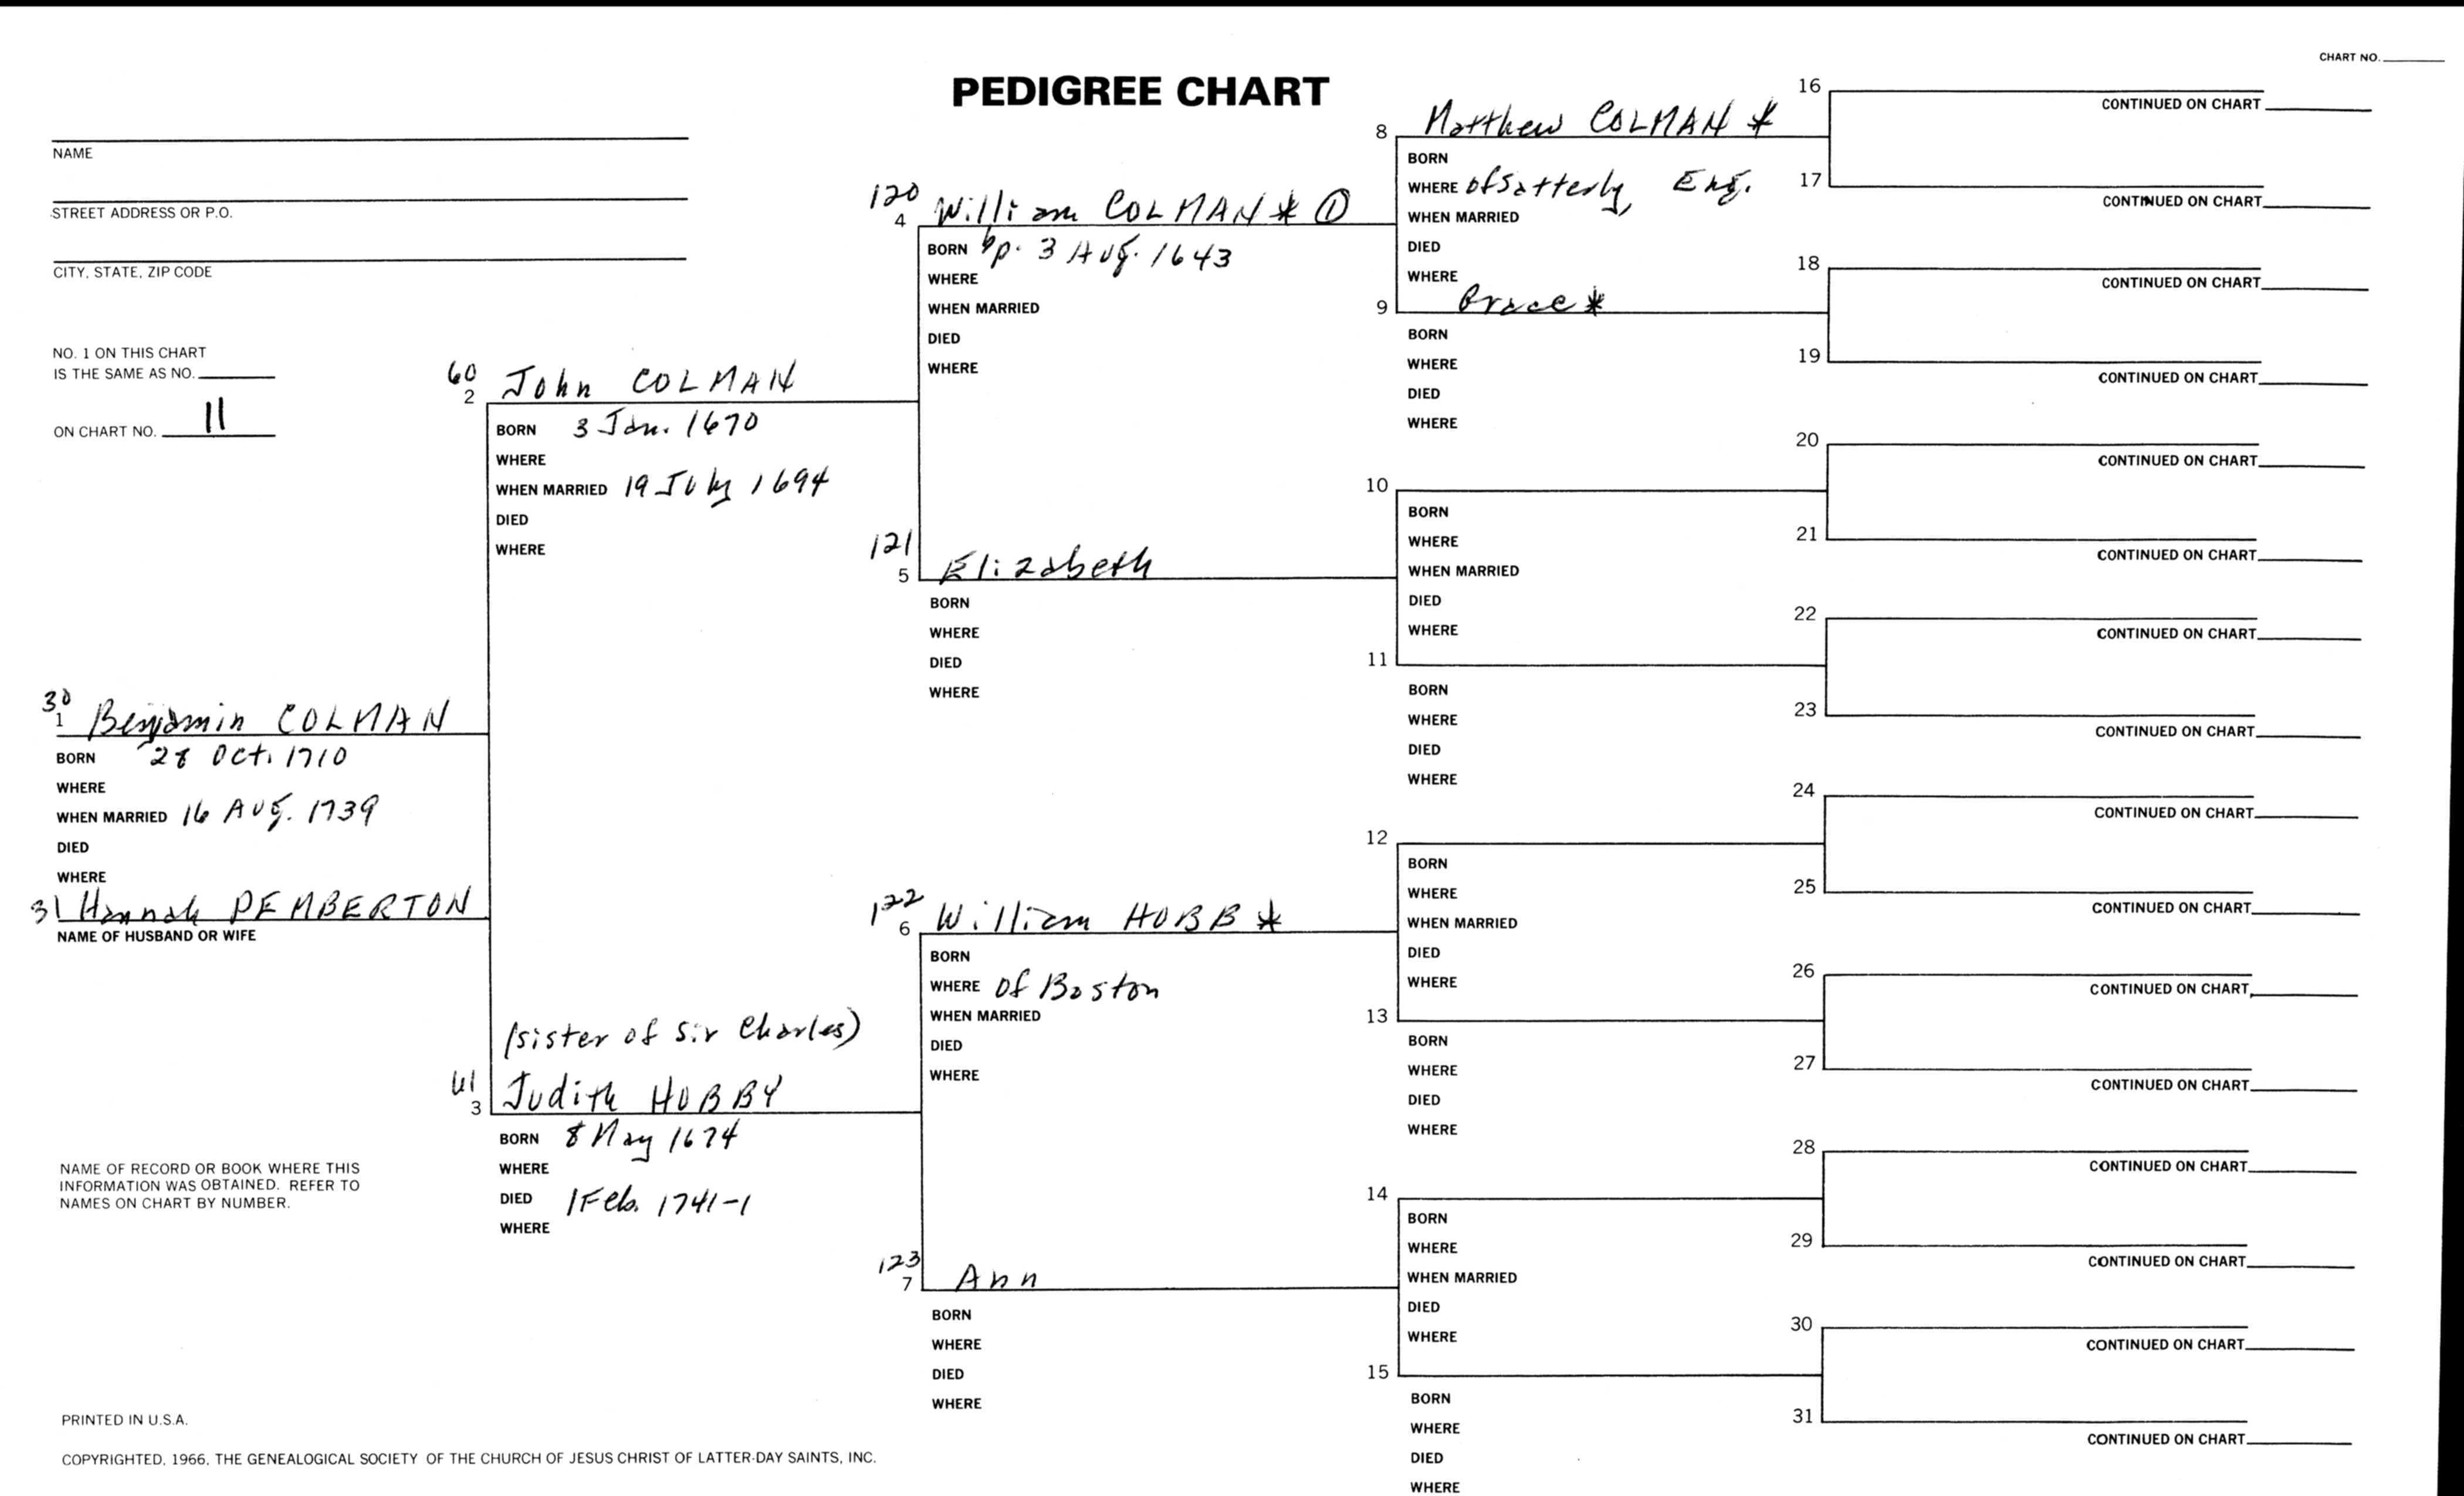 CHART NO.
PEDIGREE CHART
NAME
STREET ADDRESS OR P.O.
CITY, STATE, ZIP CODE
NO. 1 ON THIS CHART
IS THE SAME AS NO.
ON CHART NO. 11
30
1 Benjamin COLMAN
BORN 28 Oct. 1710
WHERE
WHEN MARRIED 16 Aug. 1739
DIED
WHERE
31 Hannah PEMBERTON
NAME OF HUSBAND OR WIFE
NAME OF RECORD OR BOOK WHERE THIS
INFORMATION WAS OBTAINED. REFER TO
NAMES ON CHART BY NUMBER.
60
2 John COLMAN
BORN 3 Jan. 1670
WHERE
WHEN MARRIED 19 July 1694
DIED
WHERE
(sister of Sir Charles)
61
3 Judith HOBBY
BORN 8 May 1674
WHERE
DIED 1 Feb. 1741-1
WHERE
120
4 William COLMAN * ①
BORN bp. 3 Aug. 1643
WHERE
WHEN MARRIED
DIED
WHERE
121
5 Elizabeth
BORN
WHERE
DIED
WHERE
122
6 William HOBB *
BORN
WHERE of Boston
WHEN MARRIED
DIED
WHERE
123
7 Ann
BORN
WHERE
DIED
WHERE
8 Matthew COLMAN *
BORN
WHERE of Satterly, Eng.
WHEN MARRIED
DIED
WHERE
9 Grace *
BORN
WHERE
DIED
WHERE
10
BORN
WHERE
WHEN MARRIED
DIED
WHERE
11
BORN
WHERE
DIED
WHERE
12
BORN
WHERE
WHEN MARRIED
DIED
WHERE
13
BORN
WHERE
DIED
WHERE
14
BORN
WHERE
WHEN MARRIED
DIED
WHERE
15
BORN
WHERE
DIED
WHERE
16
CONTINUED ON CHART
17
CONTINUED ON CHART
18
CONTINUED ON CHART
19
CONTINUED ON CHART
20
CONTINUED ON CHART
21
CONTINUED ON CHART
22
CONTINUED ON CHART
23
CONTINUED ON CHART
24
CONTINUED ON CHART
25
CONTINUED ON CHART
26
CONTINUED ON CHART
27
CONTINUED ON CHART
28
CONTINUED ON CHART
29
CONTINUED ON CHART
30
CONTINUED ON CHART
31
CONTINUED ON CHART
PRINTED IN U.S.A.
COPYRIGHTED, 1966, THE GENEALOGICAL SOCIETY OF THE CHURCH OF JESUS CHRIST OF LATTER-DAY SAINTS, INC.